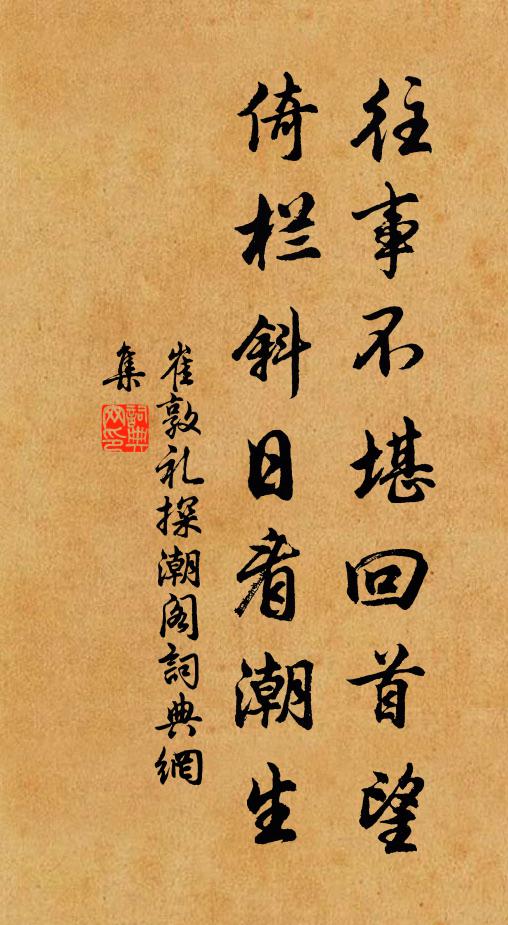 往事不堪回首望
倚栏斜日看潮生
崔敦礼探潮阁詞典網
集
詞典网印